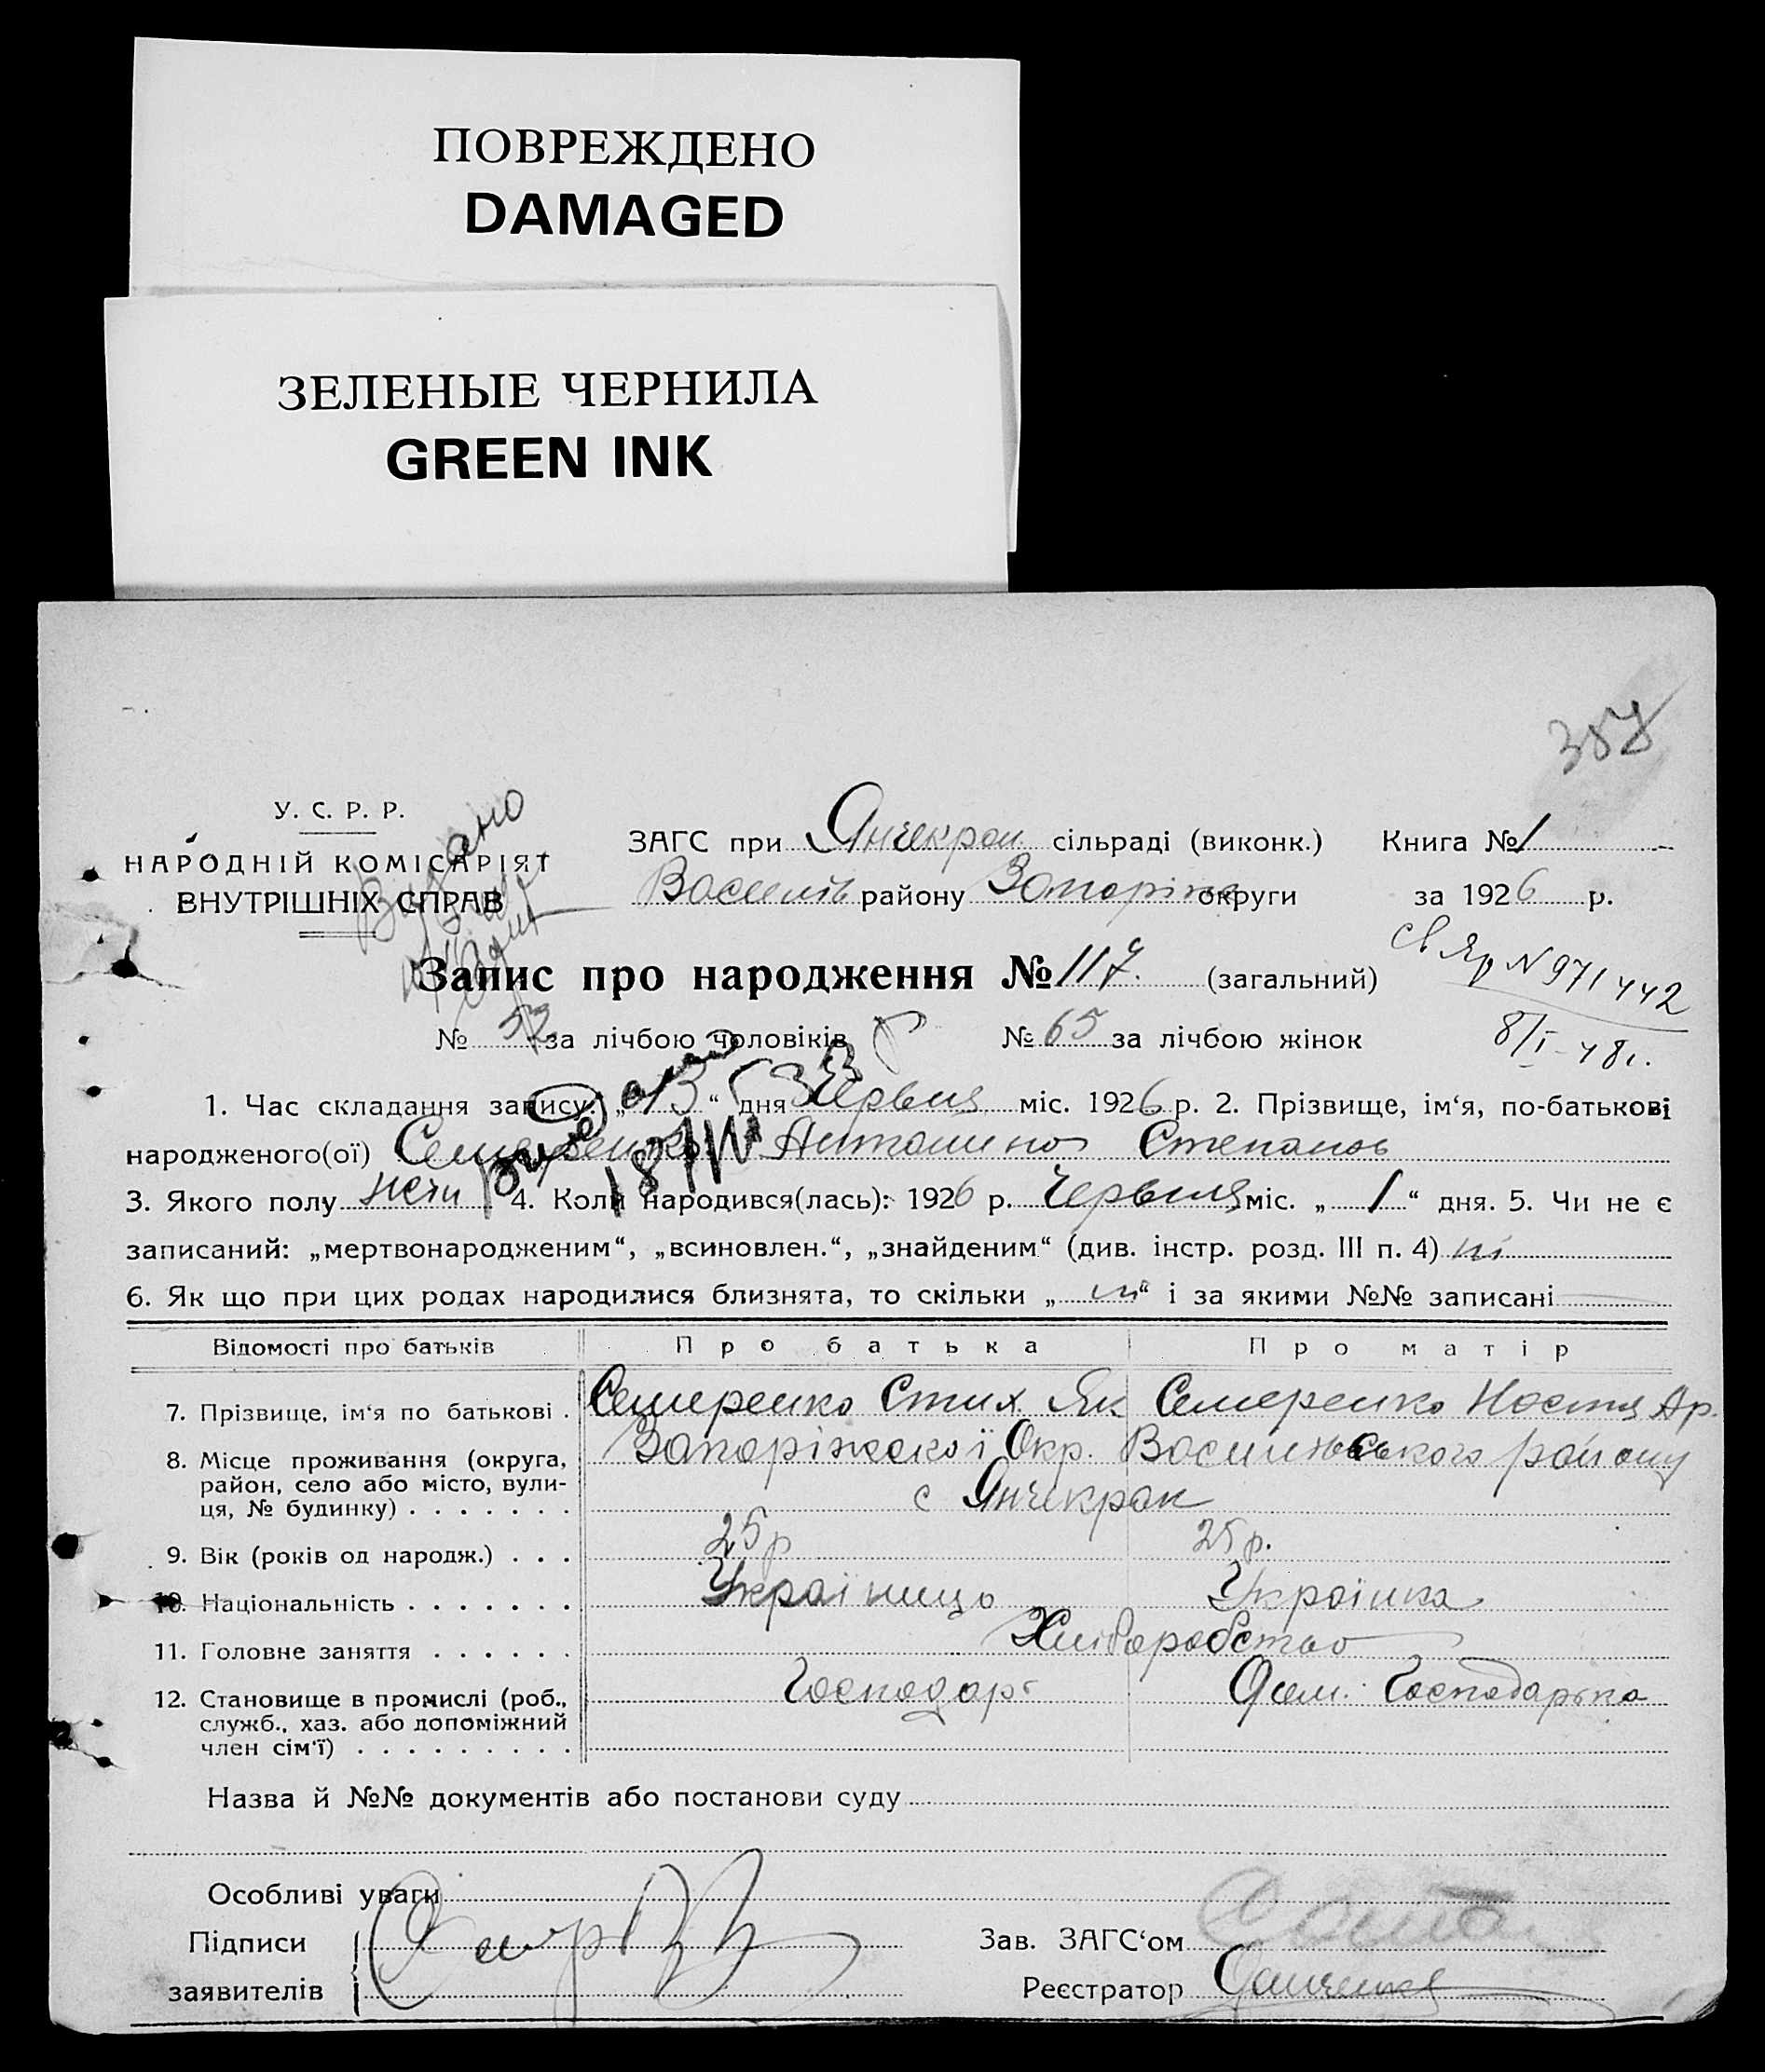 ПОВРЕЖДЕНО
DAMAGED
ЗЕЛЕНЫЕ ЧЕРНИЛА
GREEN INK
357
У. С. Р. Р.
НАРОДНІЙ КОМІСАРІЯТ
ВНУТРІШНІХ СПРАВ
Видано
ЗАГС при Янчекрак сільраді (виконк.) Книга № 1
Василів району Запоріж округи за 1926 р.
Запис про народження № 117. (загальний)
св Яр N 971442
8/I-48г.
№ 52 за лічбою чоловіків № 65 за лічбою жінок
1. Час складання запису: „13“ дня Червця міс. 1926 р. 2. Прізвище, ім‘я, по-батькові
народженого(ої) Семеренко Антонина Степанов
3. Якого полу жети 4. Коли народився(лась): 1926 р. Червця міс. „1“ дня. 5. Чи не є
записаний: „мертвонародженим“, „всиновлен.“, „знайденим“ (див. інстр. розд. III п. 4) ні
6. Як що при цих родах народилися близнята, то скільки „ні“ і за якими №№ записані
Відомості про батьків Про батька Про матір
7. Прізвище, ім‘я по батькові . Семеренко Стих Як Семеренко Настя Др.
8. Місце проживання (округа, район, село або місто, вулиця, № будинку) . . . . . . . Запоріжської Окр. Васильевського району
с Янчекрак
9. Вік (років од народж.) . . . 25 р 25 р.
10. Національність . . . . . . . Українець Українка
11. Головне заняття . . . . . . Хліборобство
12. Становище в промислі (роб., служб., хаз. або допоміжний член сім‘ї) . . . . . . . . . Господарь Дом. Господарька
Назва й №№ документів або постанови суду
Особливі уваги
Підписи
заявителів
Зав. ЗАГС‘ом
Реєстратор